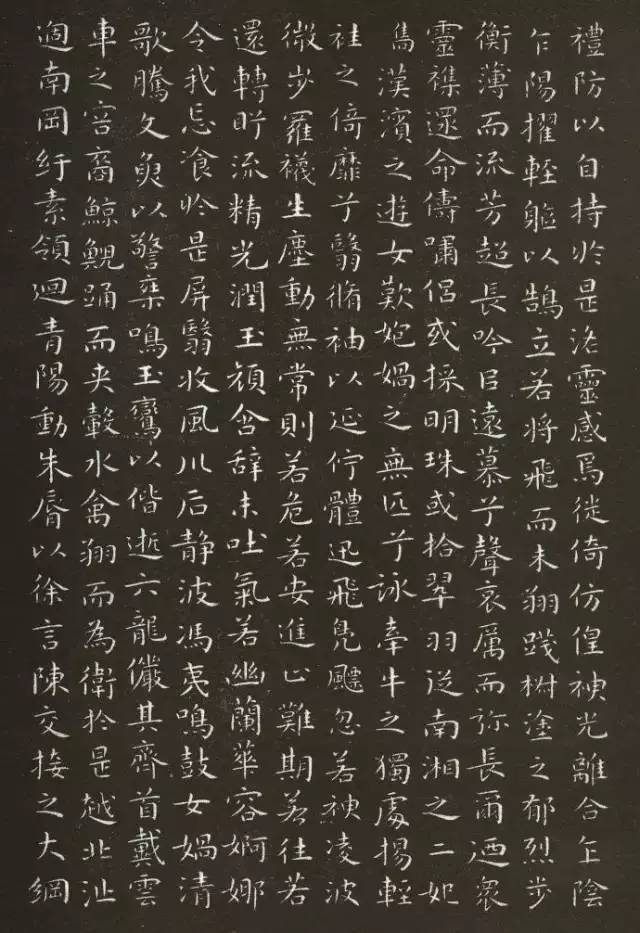 禮防以自持於是洛靈感焉徙倚仿偟神光離合乍陰
乍陽擢輕軀以鵠立若將飛而未翔踐椒塗之郁烈步
衡薄而流芳超長吟以遠慕兮聲哀厲而彌長爾迺衆
靈襍遝命儔嘯侶或採明珠或拾翠羽從南湘之二妃
雋漢濱之遊女歎匏媧之無匹兮詠牽牛之獨處揚輕
袿之倚靡兮翳脩袖以延佇體迅飛鳧飄忽若神凌波
微步羅襪生塵動無常則若危若安進止難期若往若
還轉眄流精光潤玉顏含辭未吐氣若幽蘭華容婀娜
令我忘飡於是屏翳收風川后静波馮夷鳴鼓女媧清
歌騰文魚以警椉鳴玉鸞以偕逝六龍儼其齊首戴雲
車之容裔鯨鯢踊而夾轂水禽翔而為衛於是越北沚
過南岡紆素領迴青陽動朱脣以徐言陳交接之大綱